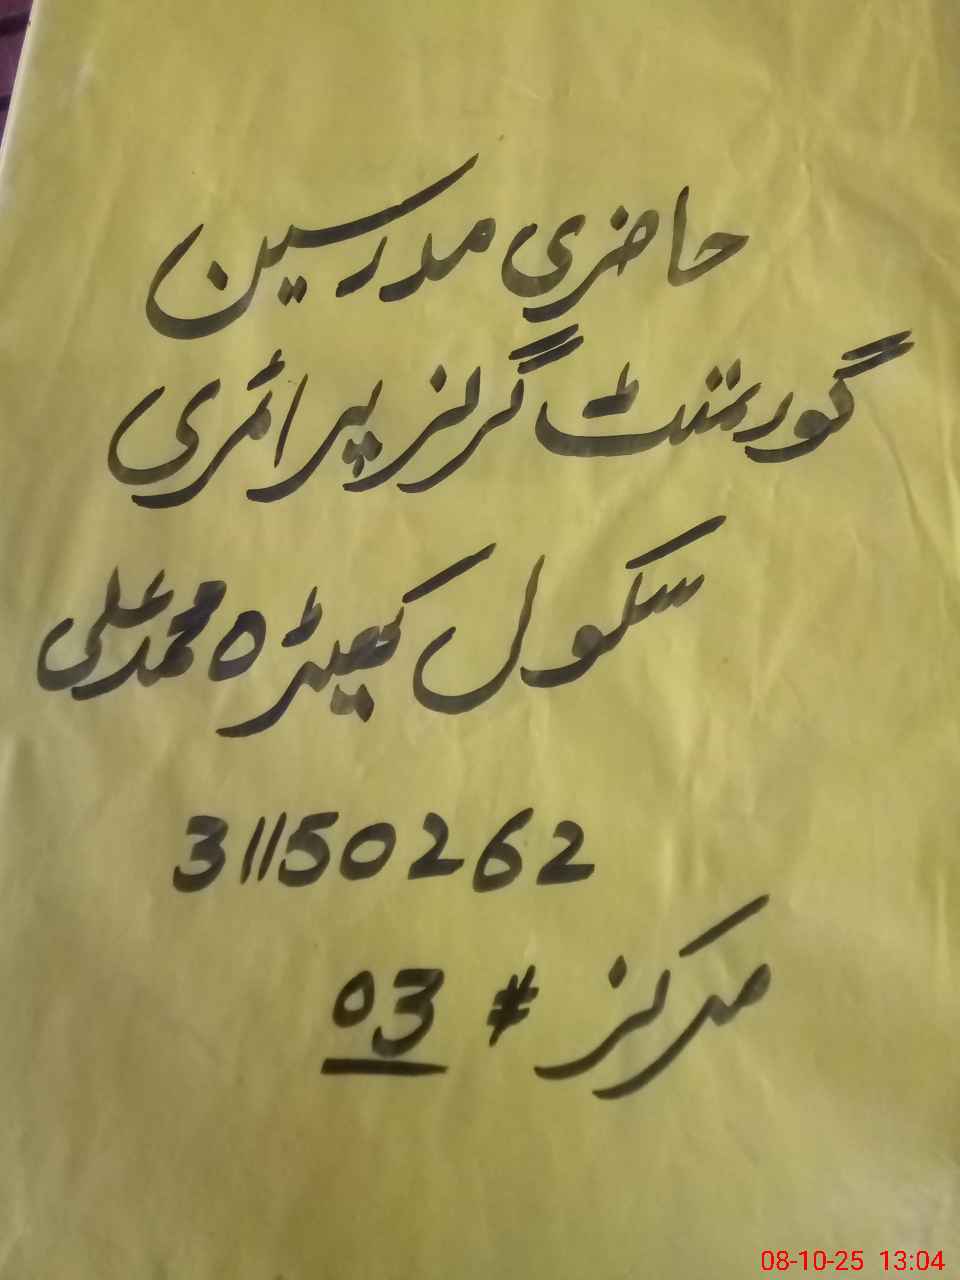 حاضری مدرسین
گورنمنٹ گرلز پرائمری
سکول کھیڑہ محمد علی
31150262
مرکز # 03
08-10-25 13:04